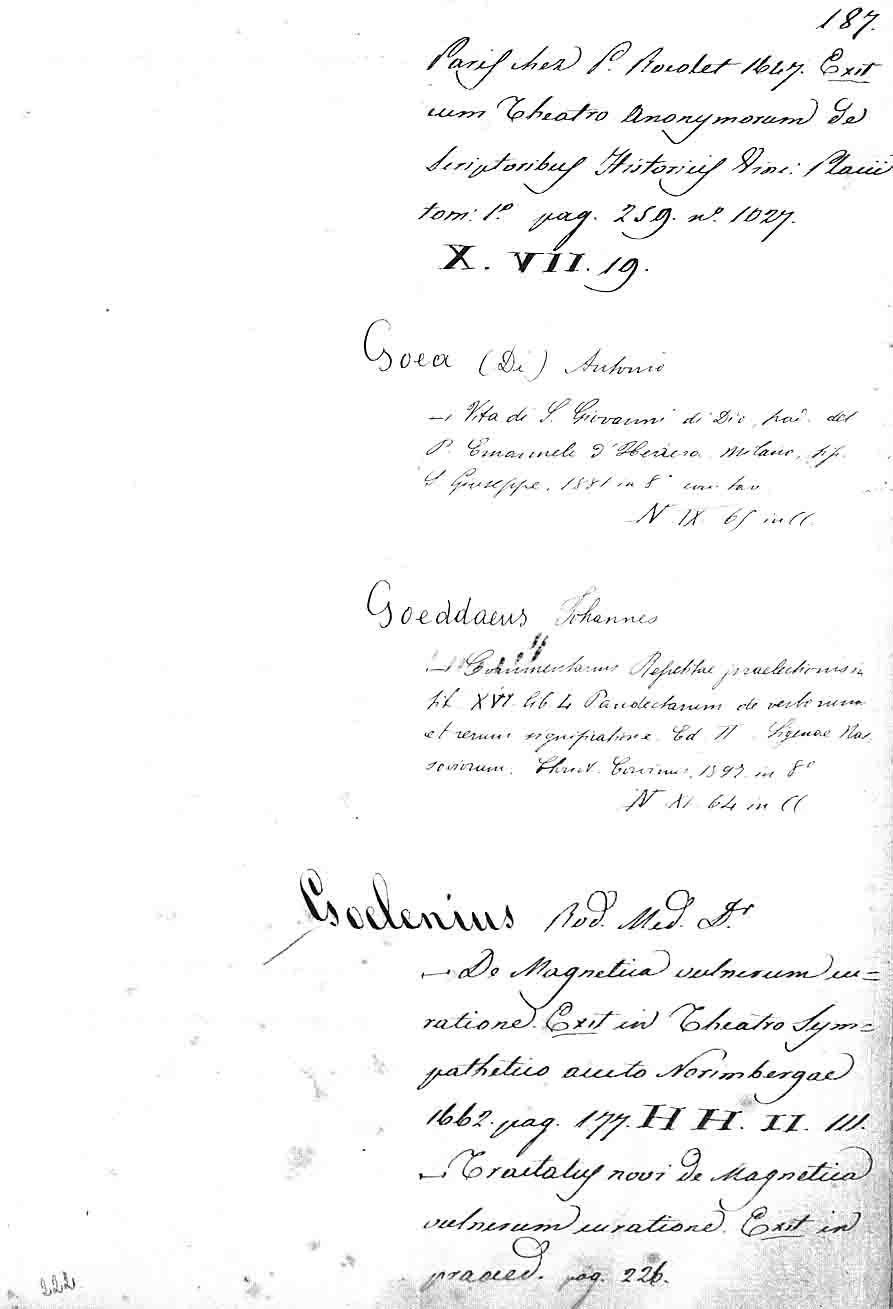 187.
Paris chez P. Rocolet 1647. Exit
cum Theatro Anonymorum de
Scriptoribus Historicis Vinc: Placii
tom: 1º pag. 259. nº. 1027.
X. VII. 19.
Goea (Di) Antonio
— Vita di S. Giovanni di Dio, trad. del
P. Emanuele d'Herrera. Milano, tip.
S Giuseppe, 1881 in 8º con tav
N IX 65 in CC.
Goeddaeus Johannes
— Commentarius Repetitae praelectionis in
tit XVI lib 4 Pandectarum de verborum
et rerum significatione. Ed II. Sigenae Nas
soviorum. Christ. Corvinus, 1597 in 8º
N XI 64 in CC
Goclenius Rod. Med. Dr
— De Magnetica vulnerum cu=
ratione. Exit in Theatro Sym=
pathetico aucto Norimbergae
1662. pag. 177. HH. II. III.
— Tractatus novi de Magnetica
vulnerum curatione. Exit in
praeced. pag. 226.
222.